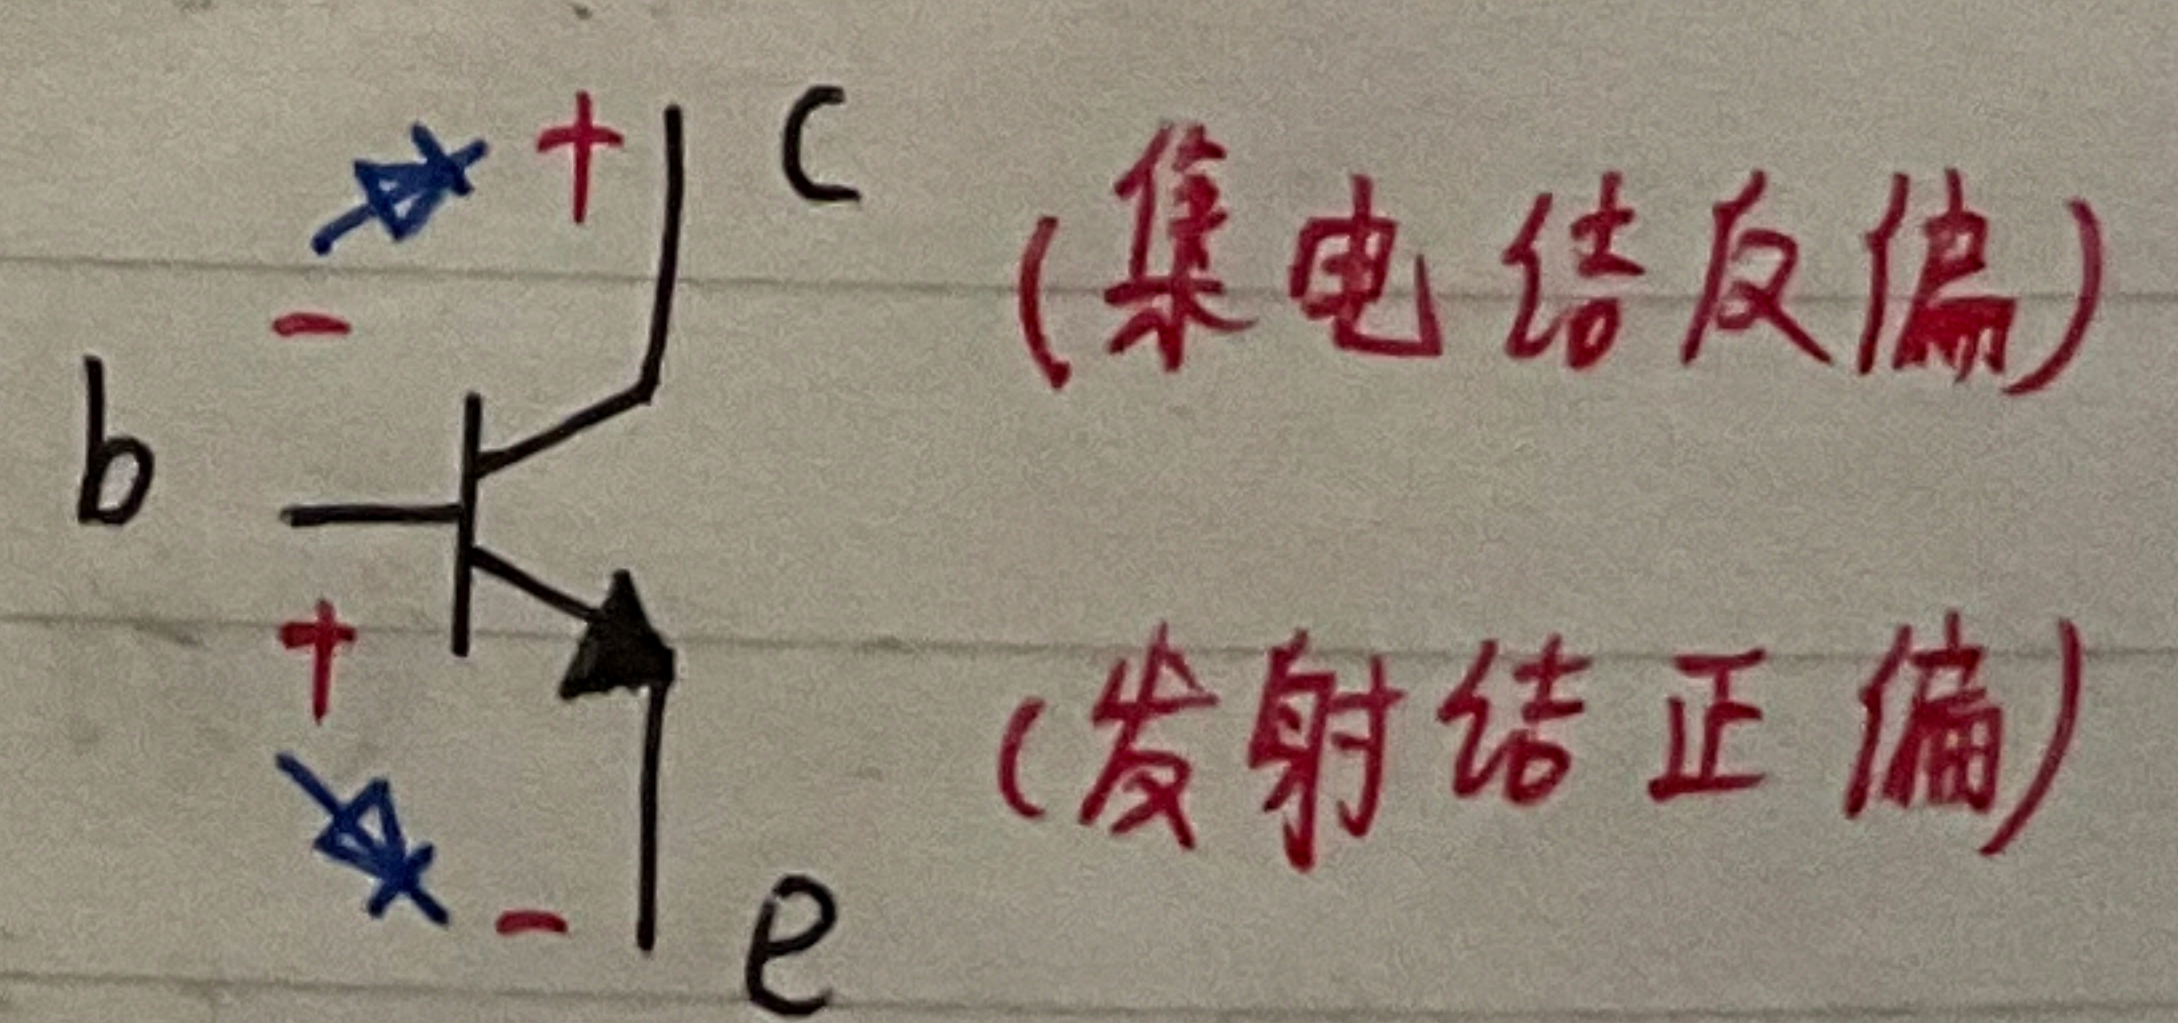 + c (集电结反偏)
-
b
+ (发射结正偏)
- e